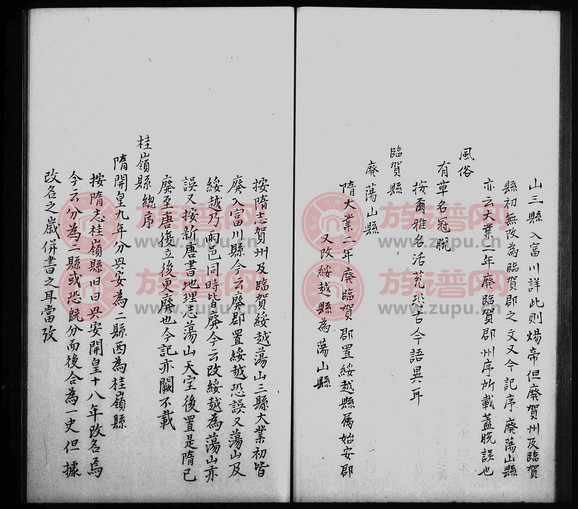 山三縣入富川詳此則煬帝但廢賀州及臨賀
縣初無改為臨賀郡之文又今記序廢蕩山縣
亦云大業二年廢臨賀郡州序所載蓋脱誤也
風俗
有草名冠脱
按爾雅名活莌古今語異耳
臨賀縣
廢蕩山縣
隋大業二年廢臨賀郡置綏越縣属始安郡
又改綏越縣為蕩山縣
按隋志賀州及臨賀綏越蕩山三縣大業初皆
廢入富川縣今云廢郡置綏越恐誤又蕩山及
綏越乃兩邑同時皆廢今云改綏越為蕩山亦
誤又按新唐書地理志蕩山天宝後置是隋已
廢至唐復立後更廢也今記亦闕不載
桂嶺縣 總序
隋開皇九年分興安為二縣西為桂嶺縣
按隋志桂嶺縣旧曰興安開皇十八年改名焉
今云分為二縣或恐既分而後合為一史但據
改名之歲併書之耳當攷
族譜网
www.zupu.cn
族譜网
www.zupu.cn
族譜网
www.zupu.cn
族譜网
www.zupu.cn